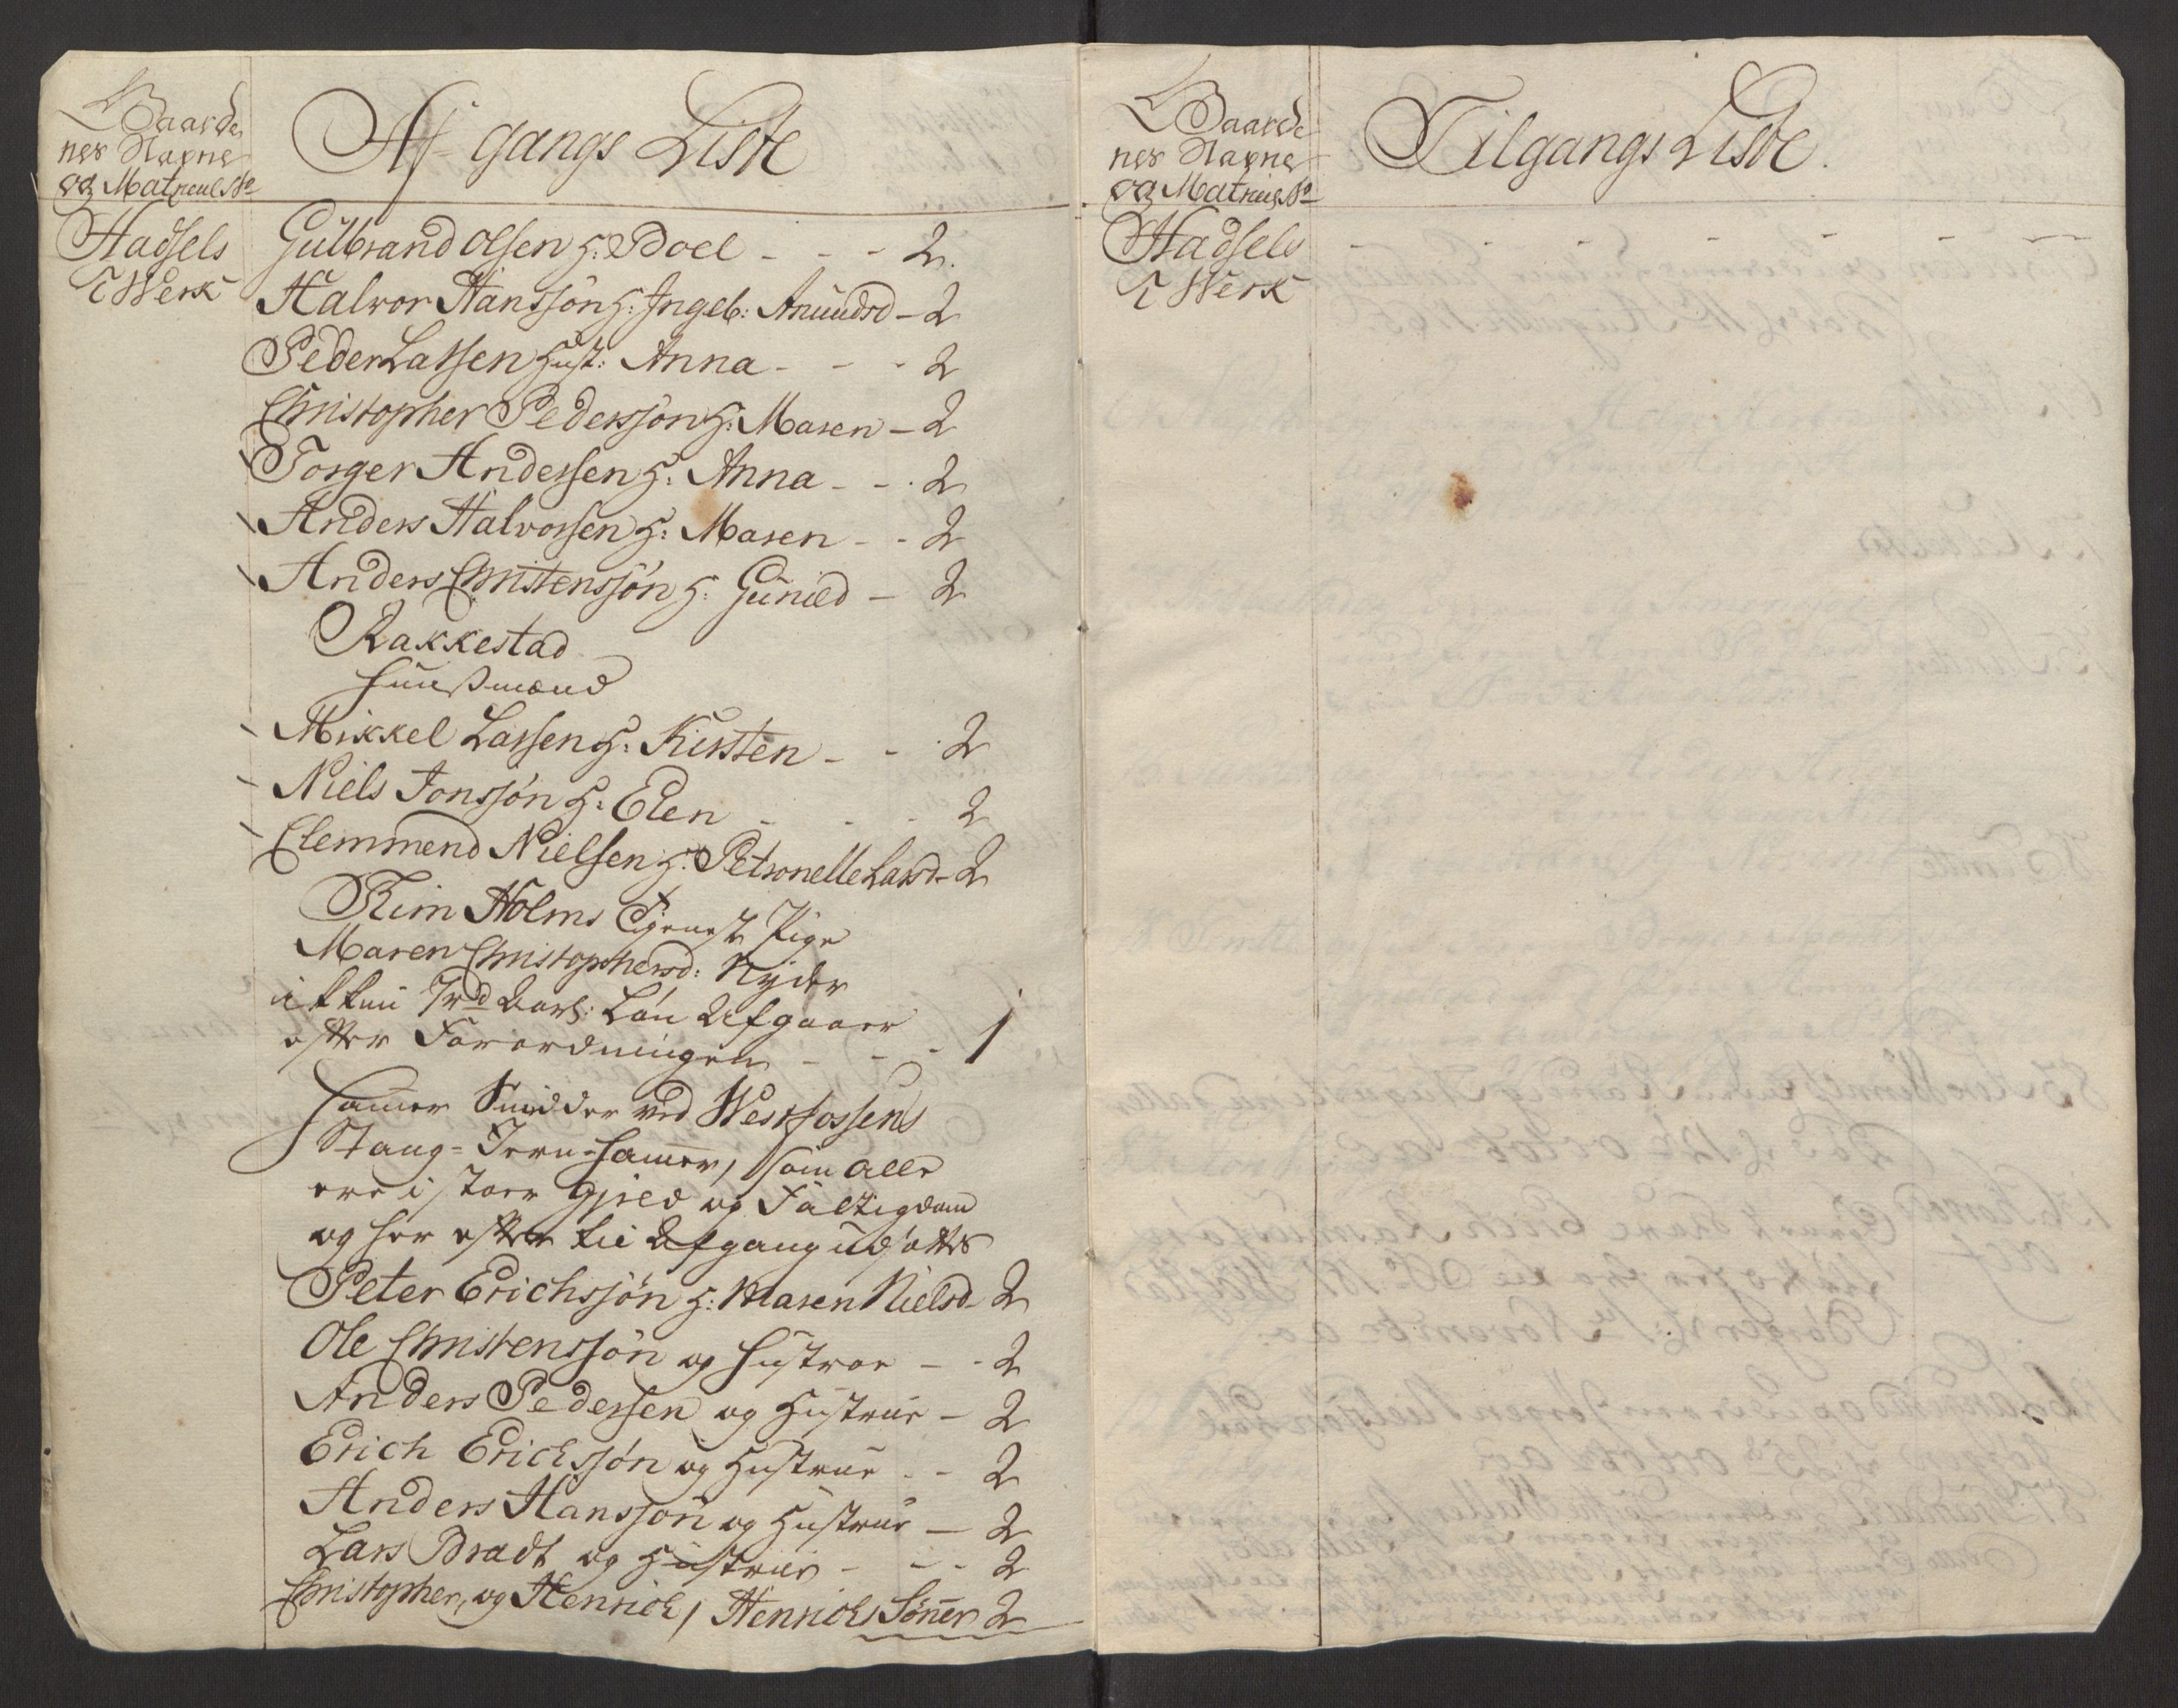 Gaarde
nes Nafne
og Matricul No
Af gangs Liste
Hadsels
Werk
Gulbrand Olsen H: Boel - - - 2.
Halvor Hanssøn H: Ingeb: Anundsd - 2
Peder Larssen Hust: Anna - - - 2
Christopher Pederssøn H: Maren - 2
Torger Anderssen H: Anna - - . 2
Anders Halvorssen H: Maren - - 2
Anders Christenssøn H: Gunild - 2
Rakkestad
Huusmænd
Mikkel Larssen H: Kirsten - - 2
Niels Jonssøn H: Elen - - - 2
Clemmend Nielsen H: Petronelle Larsd - 2
Kim Holms Tjeneste Pige
Maren Christophersd: Nyder
ikkun 7rd Aarl: Løn Afgaaer
efter Forordningen - - - 1
Hamer Smidder ved Westfossens
Stang-Jern-Hamer, som alle
ere i stoer Gjeld og Fattigdom
og her efter til Afgang udsættes
Peter Erichssøn H: Maren Nielsd - 2
Ole Christenssøn og Hustroe - - 2
Anders Pederssen og Hustrue - 2
Erich Erichssøn og Hustrue - - 2
Anders Hanssøn og Hustrue - 2
Lars Bradt og Hustrue - - - 2
Christopher, og Henrich, Henrichs Sønner 2
Gaarde
nes Nafne
og Matricul No
Tilgangs Liste.
Hadsels - - - - - - -
Werk